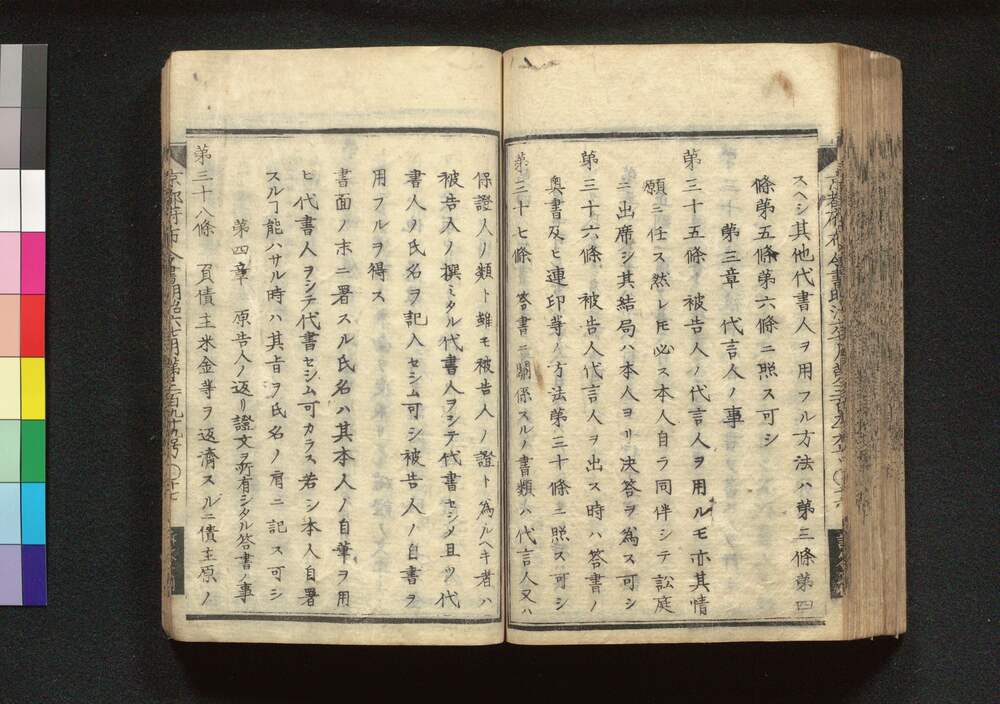 スヘシ其他代書人ヲ用フル方法ハ第三條第四
條第五條第六條ニ照ス可シ
第三章 代言人ノ事
第三十五條 被告人ノ代言人ヲ用ルモ亦其情
願ニ任ス然レ𪜈必ス本人自ラ同伴シテ訟庭
ニ出席シ其結局ハ本人ヨリ決答ヲ為ス可シ
第三十六條 被告人代言人ヲ出ス時ハ答書ノ
奥書及ヒ連印等ノ方法第三十條ニ照ス可シ
第三十七條 答書ニ關係スルノ書類ハ代言人又ハ
保證人ノ類ト雖モ被告人ノ證ト為ルヘキ者ハ
被告人ノ撰ミタル代書人ヲシテ代書セシメ且ツ代
書人ノ氏名ヲ記入セシム可シ被告人ノ自書ヲ
用フルヲ得ス
書面ノ末ニ署スル氏名ハ其本人ノ自筆ヲ用
ヒ代書人ヲシテ代書セシム可カラス若シ本人自署
スルヿ能ハサル時ハ其旨ヲ氏名ノ肩ニ記ス可シ
第四章 原告人ノ返リ證文ヲ所有シタル答書ノ事
第三十八條 負債主米金等ヲ返濟スルニ債主原ノ
京都府布令書明治六七月第二百九十九号